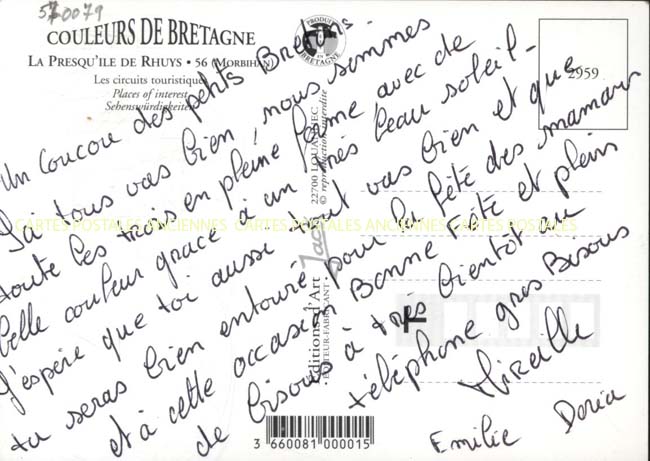 570079
COULEURS DE BRETAGNE
LA PRESQU'ILE DE RHUYS • 56 (MORBIHAN)
Les circuits touristiques
Places of interest
Sehenswürdigkeiten
PRODUIT EN BRETAGNE
2959
Un Coucou des petits Bretons.
Ça tous vas bien, nous sommes
toute les trois en pleine forme avec de
belle couleur grace à un très beau soleil -
J'espère que toi aussi tout vas bien et que
tu seras bien entouré pour la fête des mamans
et à cette occasion Bonne Fête et plein
de bisous à très bientôt au
téléphone gros Bisous
Mireille
Emilie Doria
22700 LOUANNEC
© reproduction interdite
Editions d'Art Jack
• EDITEUR-FABRICANT •
CARTES POSTALES ANCIENNES CARTES POSTALES ANCIENNES
3 660081 000015